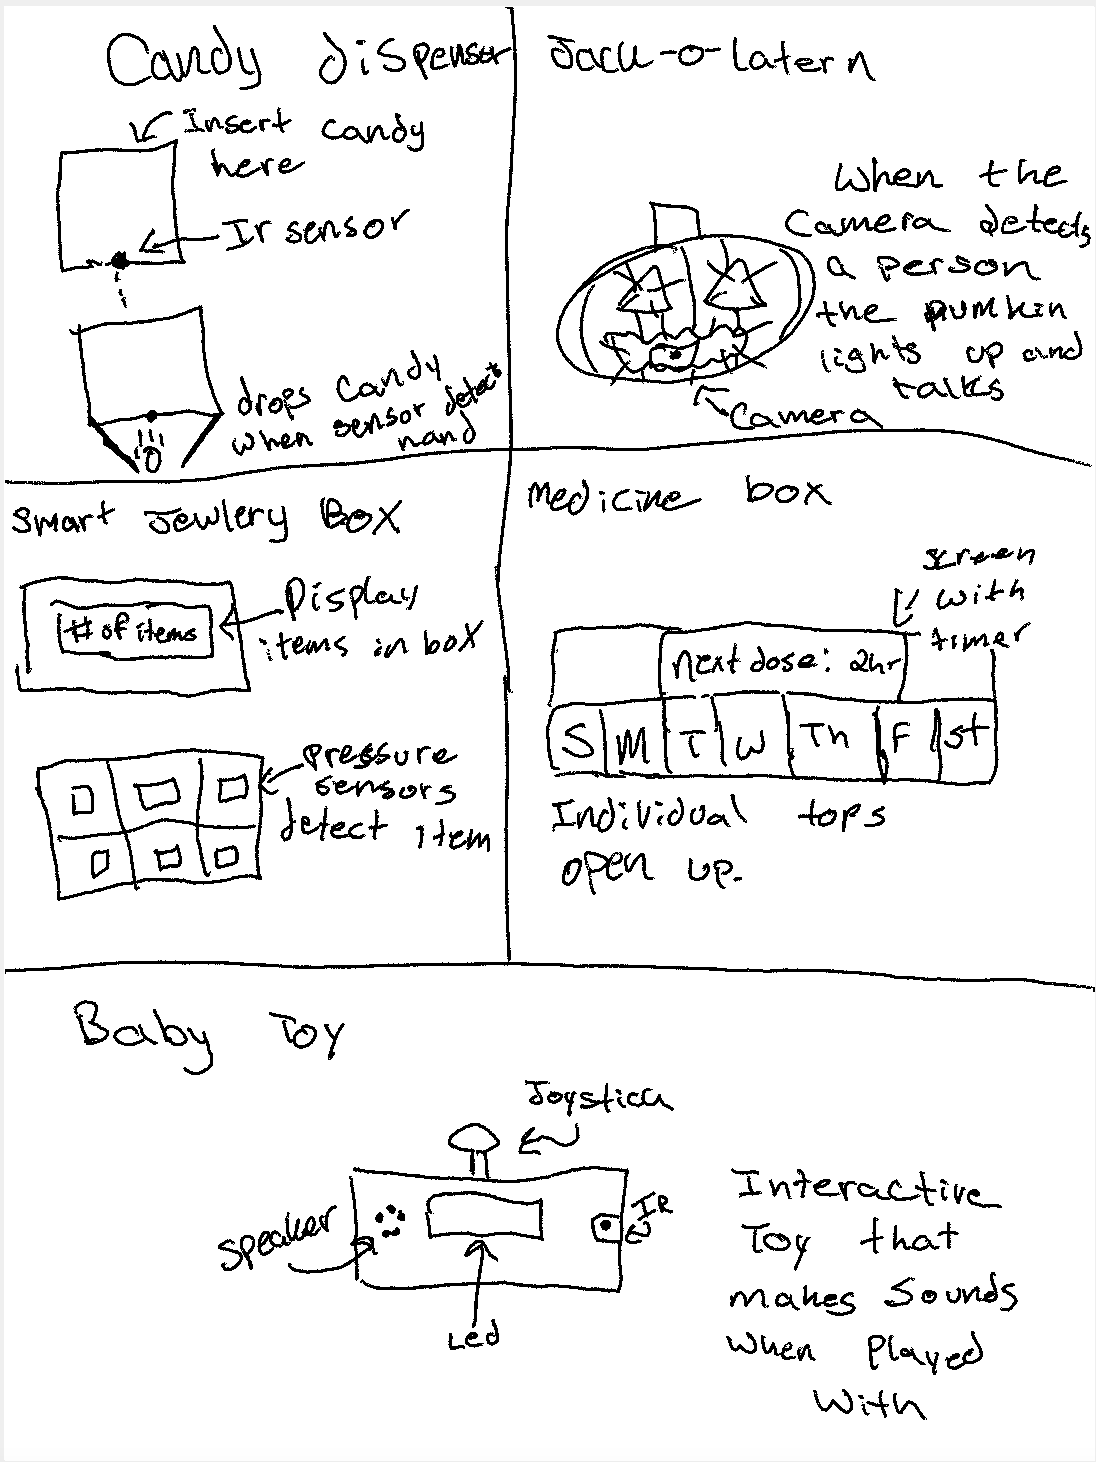 Candy dispensor
Insert candy
here
Ir sensor
drops candy
when sensor detects
hand
Jack-o-latern
When the
Camera detects
a person
the pumkin
lights up and
talks
Camera
Smart Jewlery Box
# of items
Display
items in box
Pressure
sensors
detect item
Medicine box
screen
with
timer
next dose: 2hr
S M T W Th F st
Individual tops
open up.
Baby Toy
Joystick
Speaker
IR
Led
Interactive
Toy that
makes sounds
when played
with